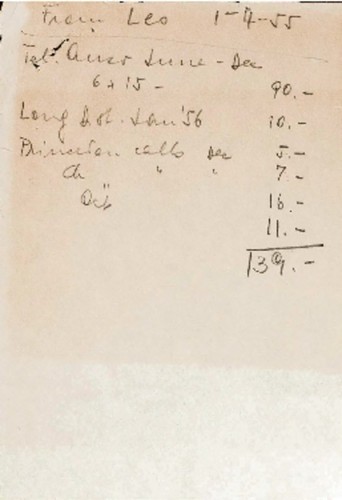 From Leo 1-4-55
Tel. Answ June - Dec
6 x 15 - 90.-
Long Dist. Jan '56 10.-
Princeton calls Dec 5.-
Ch " " 7.-
" 16.-
11.-
139.-